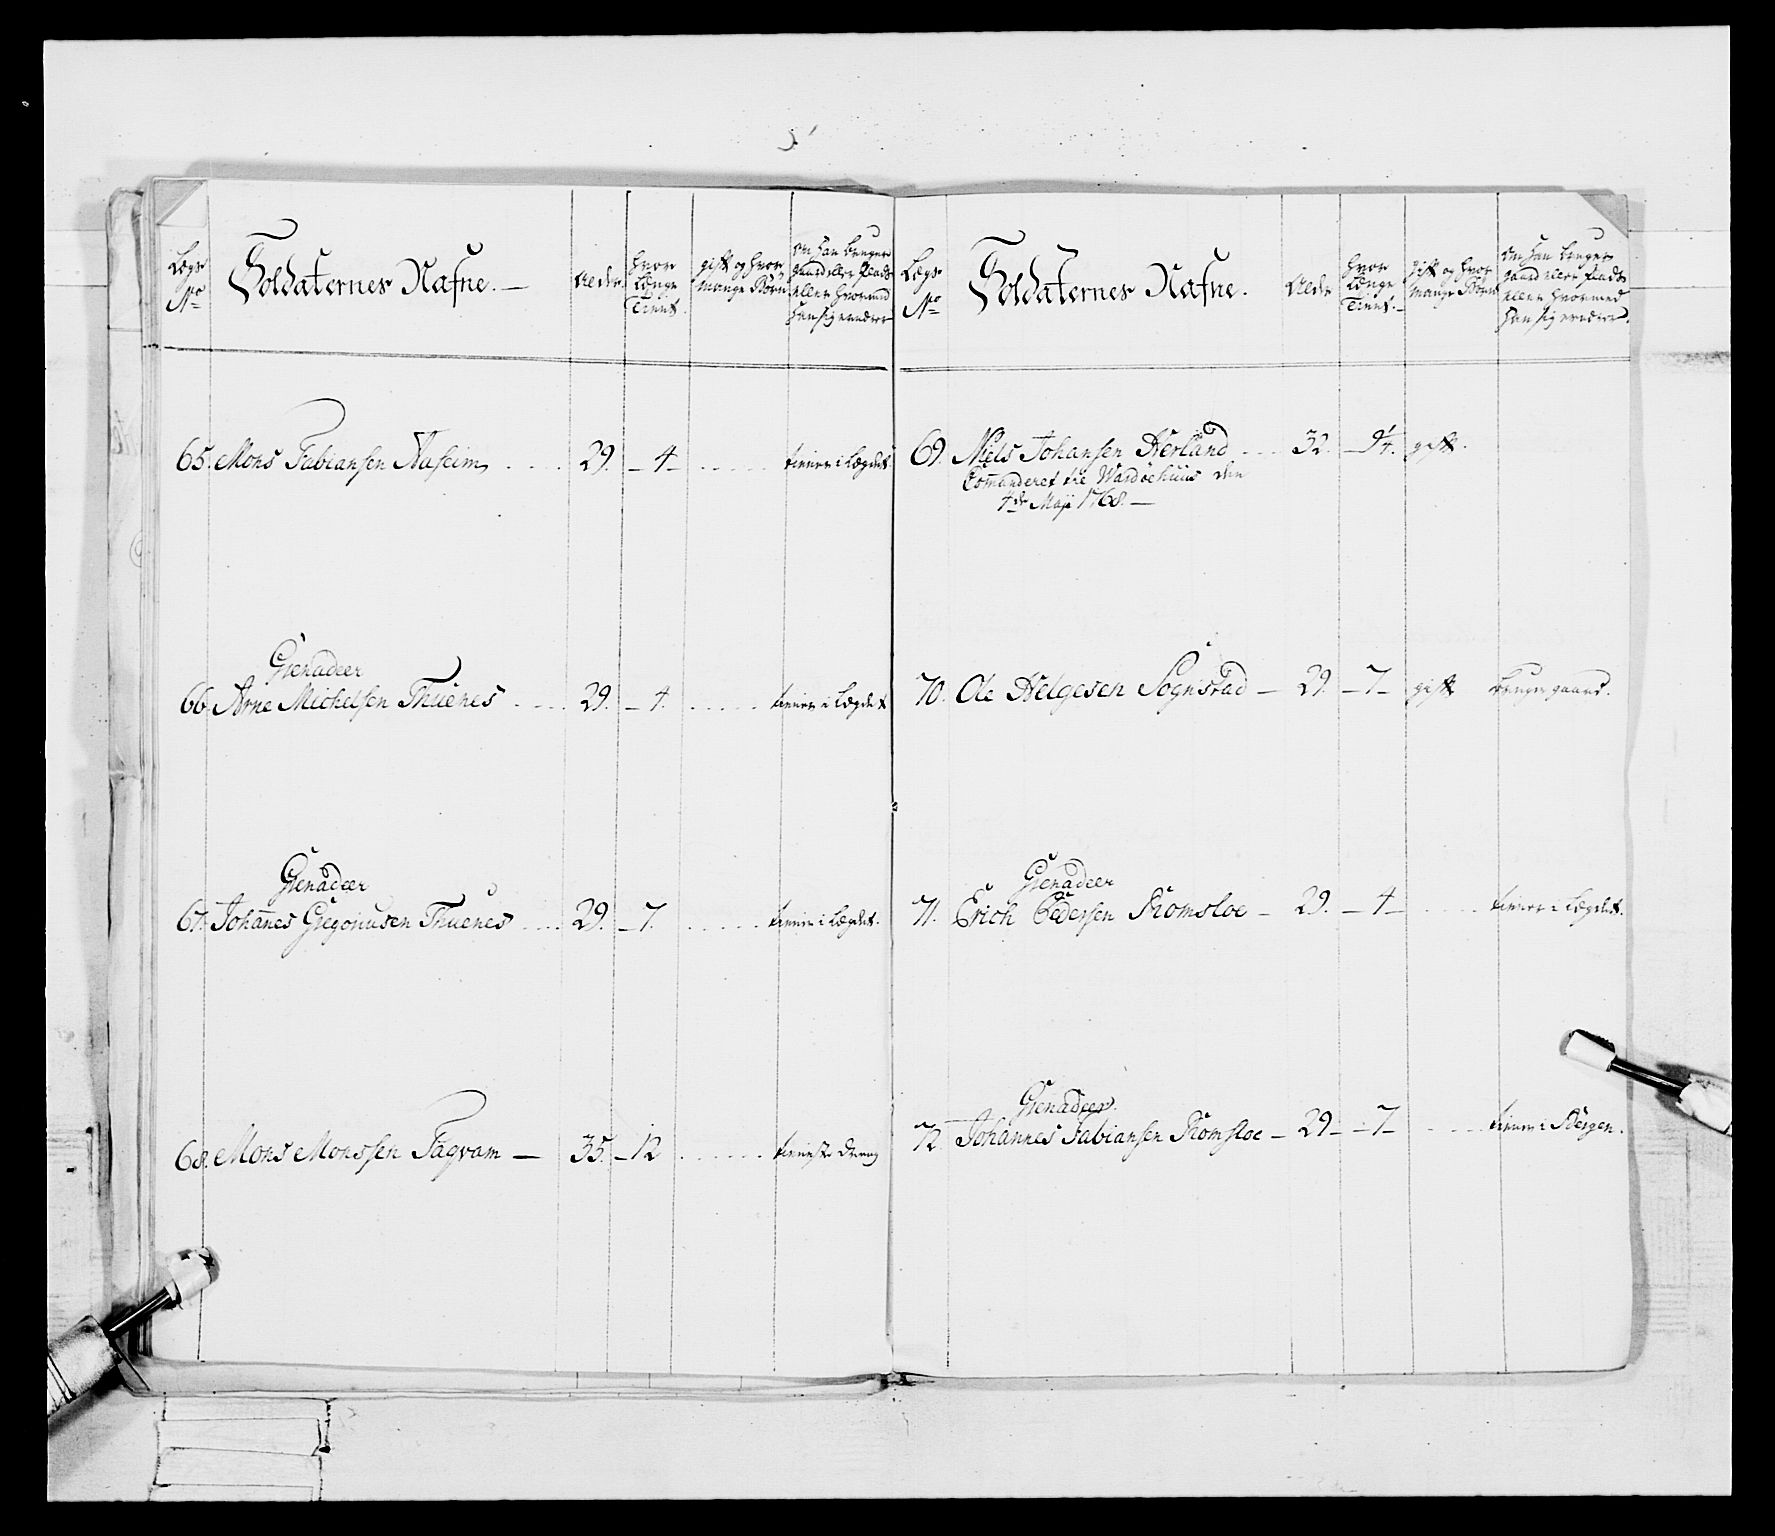 Lægs No
Soldaternes Nafne. —
Alder
hvor Længe Tient.
gift og hvor mange Børn
om han bruger gaard eller Plads eller hvormed han sig ernærer
65. Mons Fabiansen Aaseim 29. 4 tiener i Lægdet.
Grenadeer
66. Arne Michelsen Thuenes 29. 4. tiener i Lægdet
Grenadeer
67. Johannes Gregoriusen Thuenes 29. 7. tiener i Lægdet.
68. Mons Monssen Fagvam — 35. 12 tieniste Dreng
Lægs No
Soldaternes Nafne.
Alder
hvor Længe Tient.
gift og hvor mange Børn
om han bruger gaard eller Plads eller hvormed han sig ernærer.
69. Niels Johansen Herland 32. 9 1/4. gift.
Comanderet til Wardøehuus den
4de Maji 1768. —
70. Ole Helgesen Sognstad — 29. 7 gift bruger gaard.
Grenadeer
71. Erich Pedersen Romsloe — 29. 4 tiener i Lægdet.
Grenadeer.
72 Johannes Fabiansen Romsloe — 29 7 tiener i Bergen.